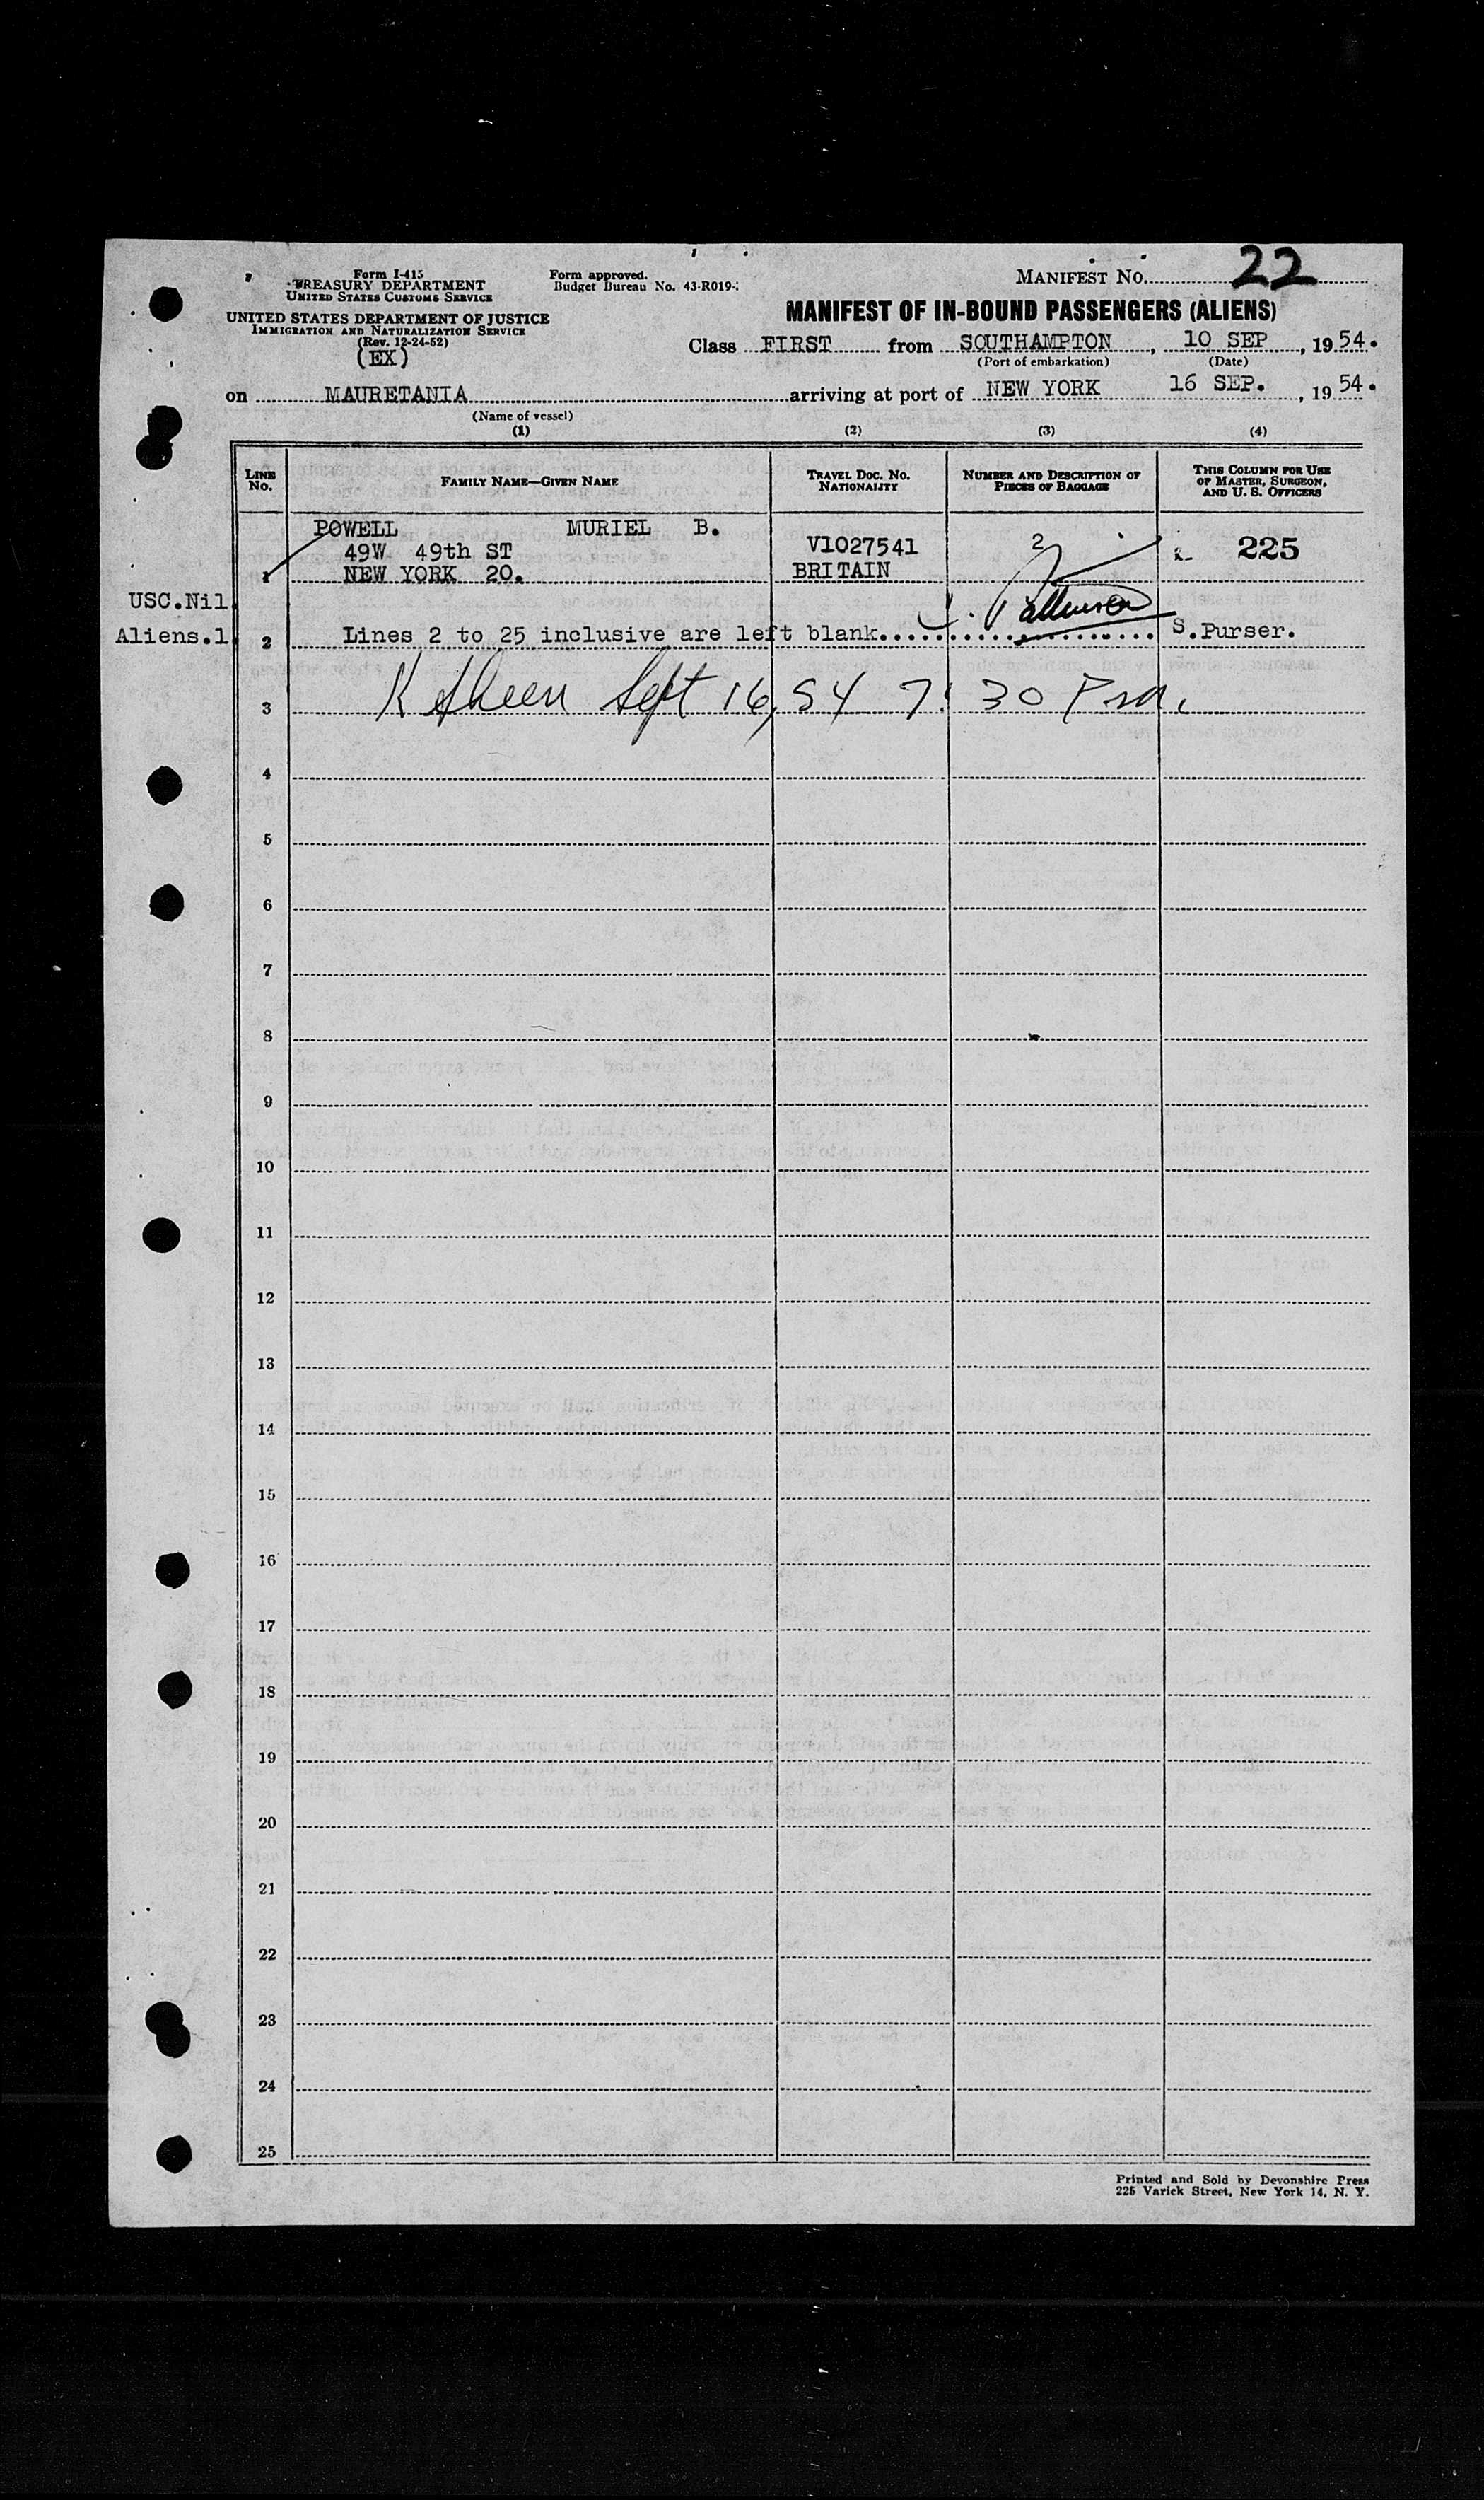 Form I-415
TREASURY DEPARTMENT
UNITED STATES CUSTOMS SERVICE
UNITED STATES DEPARTMENT OF JUSTICE
IMMIGRATION AND NATURALIZATION SERVICE
(Rev. 12-24-52)
(EX)
Form approved.
Budget Bureau No. 43-R019-
MANIFEST NO. 22
MANIFEST OF IN-BOUND PASSENGERS (ALIENS)
Class FIRST from SOUTHAMPTON, 10 SEP, 1954.
(Port of embarkation) (Date)
on MAURETANIA arriving at port of NEW YORK 16 SEP., 1954.
(Name of vessel)
(1) (2) (3) (4)
LINE NO.
FAMILY NAME—GIVEN NAME
TRAVEL DOC. NO. NATIONALITY
NUMBER AND DESCRIPTION OF PIECES OF BAGGAGE
THIS COLUMN FOR USE OF MASTER, SURGEON, AND U. S. OFFICERS
POWELL MURIEL B.
49W 49th ST V1027541 2 225
1 NEW YORK 20. BRITAIN
USC.Nil
Aliens.1 2 Lines 2 to 25 inclusive are left blank. S.Purser.
3 Sept 16, 54 7:30 Pm.
4
5
6
7
8
9
10
11
12
13
14
15
16
17
18
19
20
21
22
23
24
25
Printed and Sold by Devonshire Press
225 Varick Street, New York 14, N. Y.